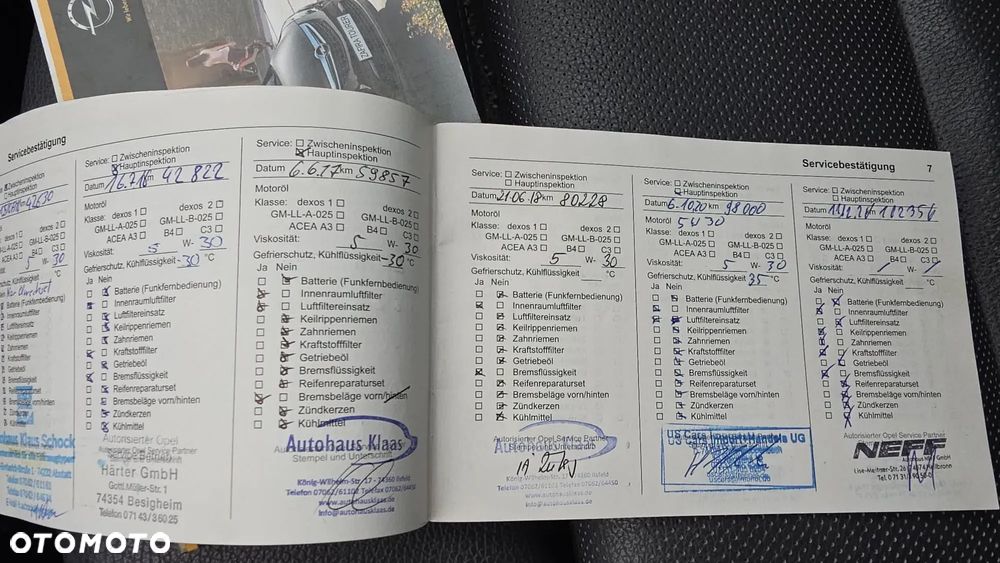 ZAFIRA TOURER
Servicebestätigung
Zwischeninspektion
Hauptinspektion
42630
dexos 1
dexos 2
GM-LL-A-025
GM-LL-B-025
ACEA A3
B4
C3
5 W- 30
Kühlflüssigkeit °C
Ja Nein
Batterie (Funkfernbedienung)
Innenraumluftfilter
Luftfiltereinsatz
Keilrippenriemen
Zahnriemen
Kraftstofffilter
Getriebeöl
Bremsflüssigkeit
Reifenreparaturset
Bremsbeläge vorn/hinten
Zündkerzen
Kühlmittel
Autohaus Klaus Schock
Service: Zwischeninspektion
Hauptinspektion
Datum 16.7.16 km 42 822
Motoröl
Klasse: dexos 1 dexos 2
GM-LL-A-025 GM-LL-B-025
ACEA A3 B4 C3
Viskosität: 5 W- 30
Gefrierschutz, Kühlflüssigkeit -30 °C
Ja Nein
Batterie (Funkfernbedienung)
Innenraumluftfilter
Luftfiltereinsatz
Keilrippenriemen
Zahnriemen
Kraftstofffilter
Getriebeöl
Bremsflüssigkeit
Reifenreparaturset
Bremsbeläge vorn/hinten
Zündkerzen
Kühlmittel
Autorisierter Opel
Service Partner
Härter GmbH
Gottl.Müller-Str. 1
74354 Besigheim
Telefon 0 71 43 / 3 60 25
Service: Zwischeninspektion
Hauptinspektion
Datum 6.6.17 km 59857
Motoröl
Klasse: dexos 1 dexos 2
GM-LL-A-025 GM-LL-B-025
ACEA A3 B4 C3
Viskosität: 5 W- 30
Gefrierschutz, Kühlflüssigkeit -30 °C
Ja Nein
Batterie (Funkfernbedienung)
Innenraumluftfilter
Luftfiltereinsatz
Keilrippenriemen
Zahnriemen
Kraftstofffilter
Getriebeöl
Bremsflüssigkeit
Reifenreparaturset
Bremsbeläge vorn/hinten
Zündkerzen
Kühlmittel
Autohaus Klaas
Stempel und Unterschrift
König-Wilhelm-Str. - 17 - 74360 Ilsfeld
Telefon 07062/61102 Telefax 07062/64450
www.autohausklaas.de
info@autohausklaas.de
Servicebestätigung 7
Service: Zwischeninspektion
Hauptinspektion
Datum 21.06.18 km 80228
Motoröl
Klasse: dexos 1 dexos 2
GM-LL-A-025 GM-LL-B-025
ACEA A3 B4 C3
Viskosität: 5 W- 30
Gefrierschutz, Kühlflüssigkeit °C
Ja Nein
Batterie (Funkfernbedienung)
Innenraumluftfilter
Luftfiltereinsatz
Keilrippenriemen
Zahnriemen
Kraftstofffilter
Getriebeöl
Bremsflüssigkeit
Reifenreparaturset
Bremsbeläge vorn/hinten
Zündkerzen
Kühlmittel
Autorisierter Opel Service Partner
Stempel und Unterschrift
König-Wilhelm-Str. - 17 - 74360 Ilsfeld
Telefon 07062/61102 Telefax 07062/64450
www.autohausklaas.de
info@autohausklaas.de
Service: Zwischeninspektion
Hauptinspektion
Datum 6.1020 km 98000
Motoröl 5W30
Klasse: dexos 1 dexos 2
GM-LL-A-025 GM-LL-B-025
ACEA A3 B4 C3
Viskosität: 5 W- 30
Gefrierschutz, Kühlflüssigkeit 35 °C
Ja Nein
Batterie (Funkfernbedienung)
Innenraumluftfilter
Luftfiltereinsatz
Keilrippenriemen
Zahnriemen
Kraftstofffilter
Getriebeöl
Bremsflüssigkeit
Reifenreparaturset
Bremsbeläge vorn/hinten
Zündkerzen
Kühlmittel
US Cars UG
Service: Zwischeninspektion
Hauptinspektion
Datum km
Motoröl
Klasse: dexos 1 dexos 2
GM-LL-A-025 GM-LL-B-025
ACEA A3 B4 C3
Viskosität: / W- /
Gefrierschutz, Kühlflüssigkeit °C
Ja Nein
Batterie (Funkfernbedienung)
Innenraumluftfilter
Luftfiltereinsatz
Keilrippenriemen
Zahnriemen
Kraftstofffilter
Getriebeöl
Bremsflüssigkeit
Reifenreparaturset
Bremsbeläge vorn/hinten
Zündkerzen
Kühlmittel
Autorisierter Opel Service Partner
NEFF
Autohaus Neff GmbH
Lise-Meitner-Str. 26 74074 Heilbronn
OTOMOTO